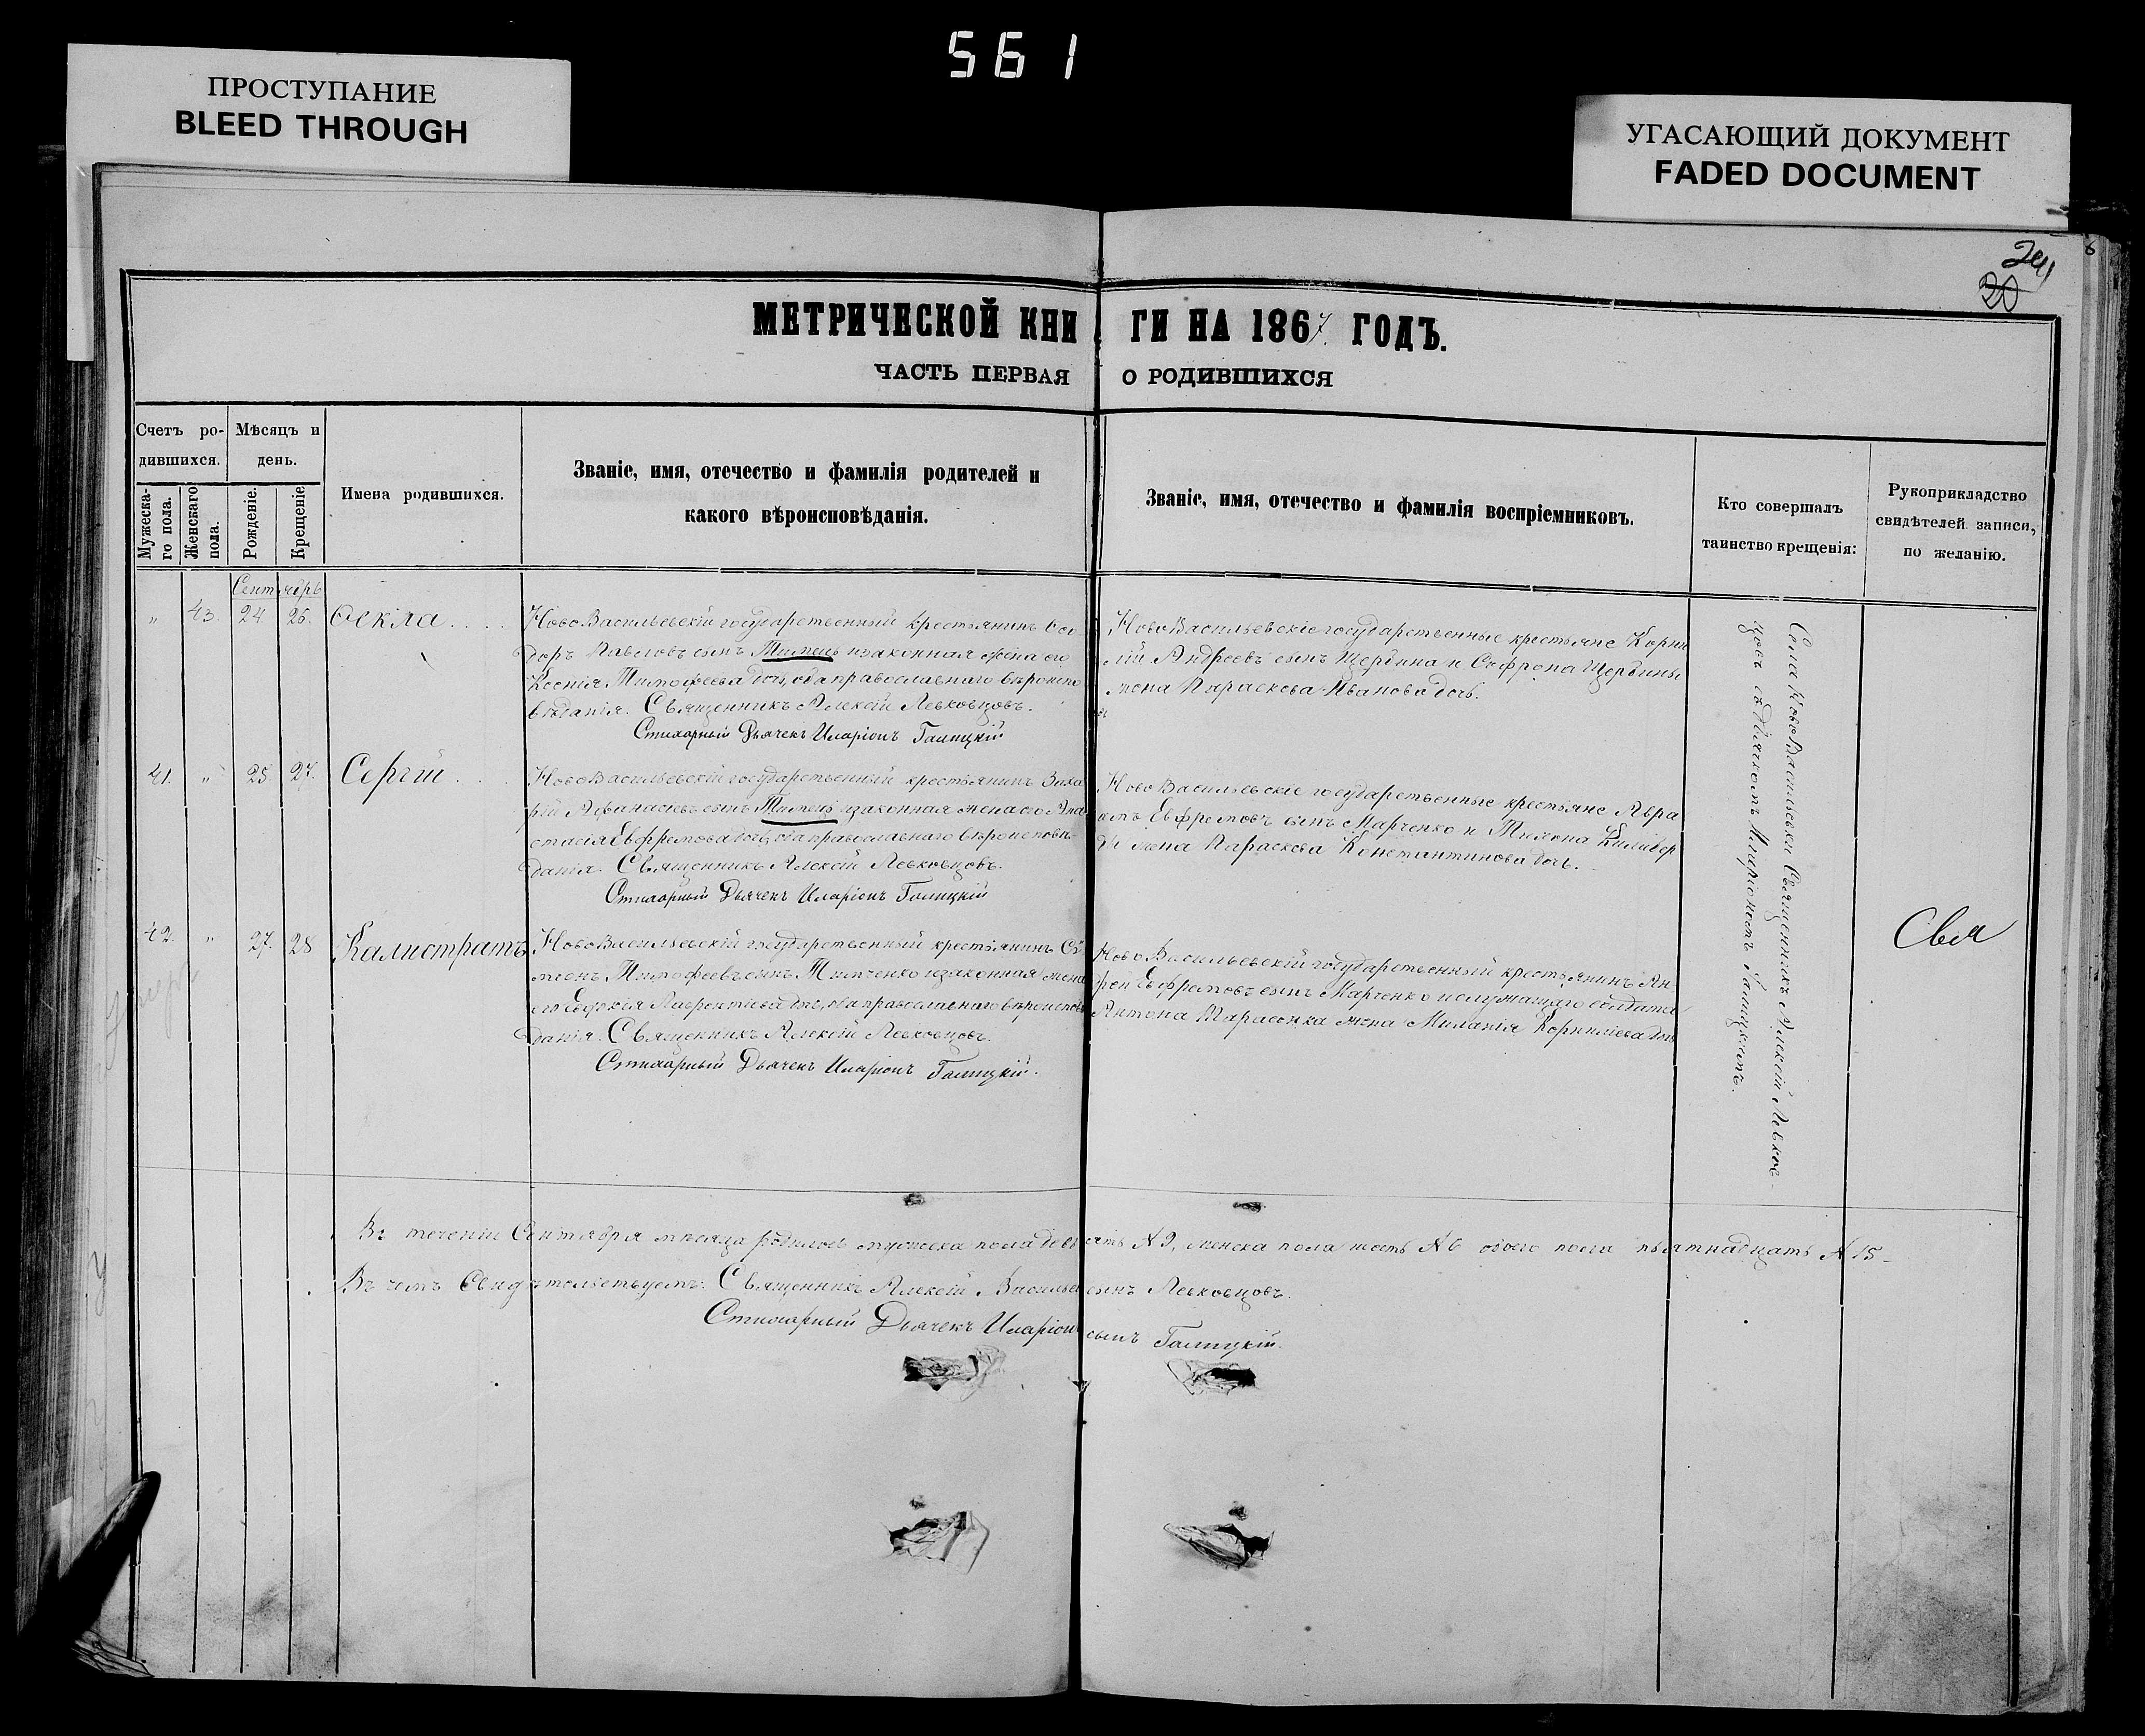 561
ПРОСТУПАНИЕ
BLEED THROUGH
УГАСАЮЩИЙ ДОКУМЕНТ
FADED DOCUMENT
20
МЕТРИЧЕСКОЙ КНИ ГИ НА 1867 ГОДЪ.
ЧАСТЬ ПЕРВАЯ О РОДИВШИХСЯ
Счетъ ро-
дившихся.
Мѣсяцъ и
день.
Мужеска-
го пола.
Женскаго
пола.
Рожденіе.
Крещеніе
Имена родившихся.
Званіе, имя, отечество и фамилія родителей и
какого вѣроисповѣданія.
Званіе, имя, отечество и фамилія воспріемниковъ.
Кто совершалъ
таинство крещенія:
Рукоприкладство
свидѣтелей записи,
по желанію.
Сентябрь
" 43. 24 25. Ѳекла
НовоВасильевскій государственный крестьянинъ
доръ Павловъ сынъ изаконная жена его
Ксенія Тимофеева дочь, оба православнаго вѣроиспо
вѣданія. Священникъ Алексій Левковцовъ.
Стихарный Дьячекъ Иларіонъ Галицкій
НовоВасильевскіе государственные крестьяне Корни
лій Андреевъ сынъ Щербина и Софрона Щербины
жена Параскева Иванова дочь.
41. " 25 27. Сергій
НовоВасильевскій государственный крестьянинъ Заха
рій Афанасіевъ сынъ изаконная жена его Ана
стасія Евфремова дочь, оба православнаго вѣроисповѣ
данія. Священникъ Алексій Левковцовъ.
Стихарный Дьячекъ Иларіонъ Галицкій
НовоВасильевскіе государственные крестьяне Авра
амъ Евфремовъ сынъ Марченко и Тихона
жена Параскева Константинова дочь.
42. " 27. 28 Калистратъ
НовоВасильевскій государственный крестьянинъ Си
меонъ Тимофеевъ сынъ Тимченко изаконная жена
его Евфросинія Лаврентіева дочь, оба православнаго вѣроисповѣ
данія. Священникъ Алексій Левковцовъ.
Стихарный Дьячекъ Иларіонъ Галицкій.
НовоВасильевскій государственный крестьянинъ Ан
Евфремовъ сынъ Марченко и служащаго солдата
Антона Тарасенка жена Миланія Корниліева дочь
Села НовоВасильевки Священникъ Алексій Левков-
цовъ съ Дьячкомъ Иларіономъ Галицкимъ.
Въ теченіи Сентября мѣсяца родилось мужеска пола девять № 9, женска пола шесть № 6 обоего пола пьятнадцать № 15-
Въ чемъ Свидѣтельствуемъ: Священникъ Алексій Васильевъ сынъ Левковцовъ.
Стихарный Дьячекъ Иларіонъ сынъ Галицкій.